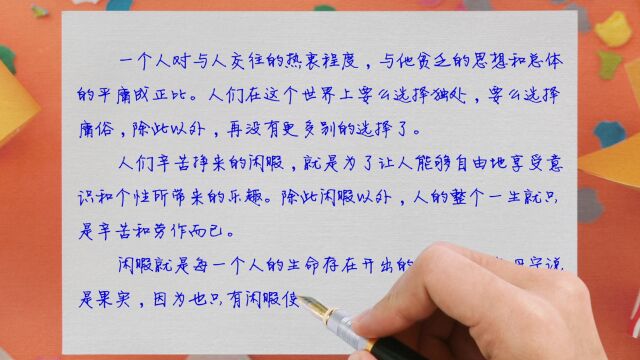 一个人对与人交往的热衷程度，与他贫乏的思想和总体
的平庸成正比。人们在这个世界上要么选择独处，要么选择
庸俗，除此以外，再没有更多别的选择了。
人们辛苦挣来的闲暇，就是为了让人能够自由地享受意
识和个性所带来的乐趣。除此闲暇以外，人的整个一生就只
是辛苦和劳作而已。
闲暇就是每一个人的生命存在开出的 说
是果实，因为也只有闲暇使